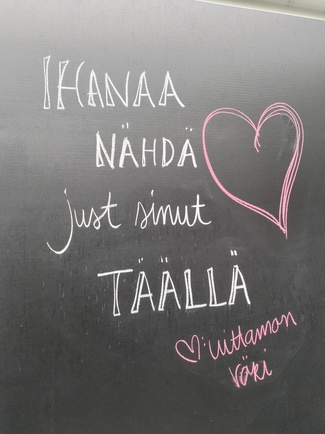 IHANAA
NÄHDÄ
just sinut
TÄÄLLÄ
♡:uittaman
väki